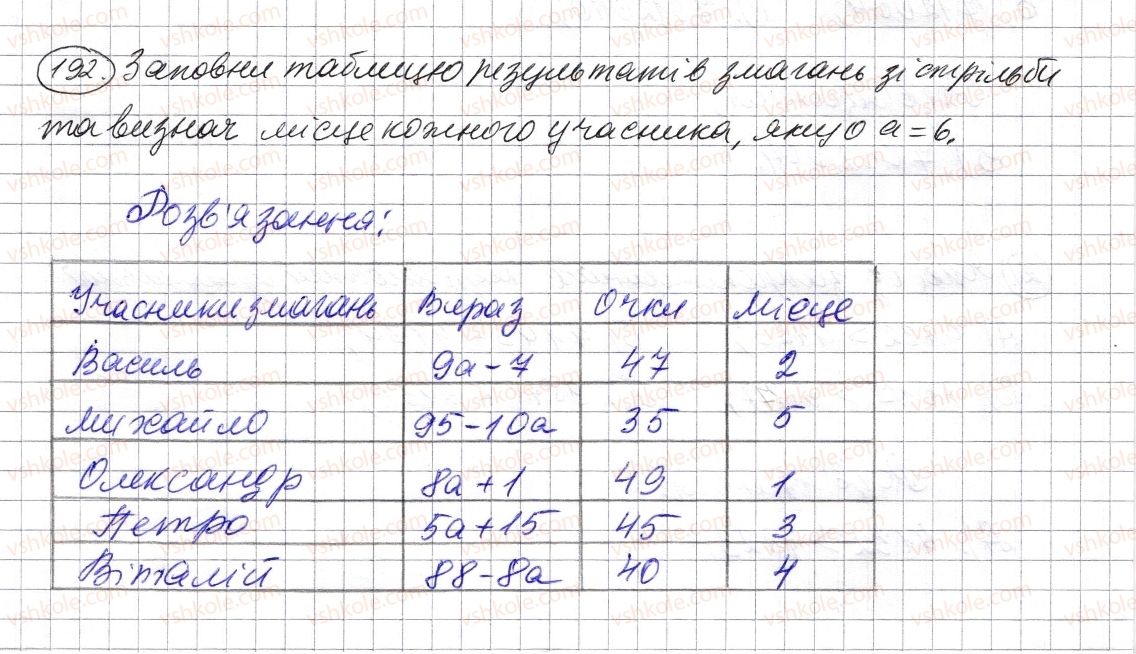 192. Заповни таблицю результатів змагань зі стрільби
та визнач місце кожного учасника, якщо a = 6.
Розв'язання:
Учасники змагань Вираз Очки Місце
Василь 9a - 7 47 2
Михайло 95 - 10a 35 5
Олександр 8a + 1 49 1
Петро 5a + 15 45 3
Віталій 88 - 8a 40 4
vshkole.com